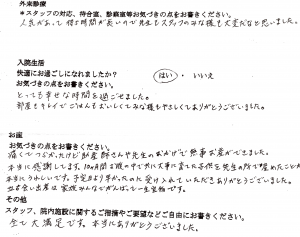 外来診療
＊スタッフの対応、待合室、診察室等お気づきの点をお書きください。
人気があって待ち時間が長いので先生もスタッフのみな様も大変だなと思いました。
入院生活
快適にお過ごしになれましたか？ はい ・ いいえ
お気づきの点をお書きください。
とっても幸せな時間を過ごせました。
部屋もキレイでごはんもおいしくてみな様もやさしくてありがとうございました。
お産
お気づきの点をお書きください。
痛くてつらかったけど助産師さんや先生のおかげで無事お産ができました。
本当に感謝してます。10ヵ月間お腹の中で大事に育てた子供を先生の所で産めたことが
本当にうれしいです。予定より早かったのに受け入れていただきありがとうございました。
立ち会い出産は家族みんなでがんばって一生の宝物です。
その他
スタッフ、院内施設に関するご指摘やご要望などご自由にお書きください。
全て大満足です。本当にありがとうございました。